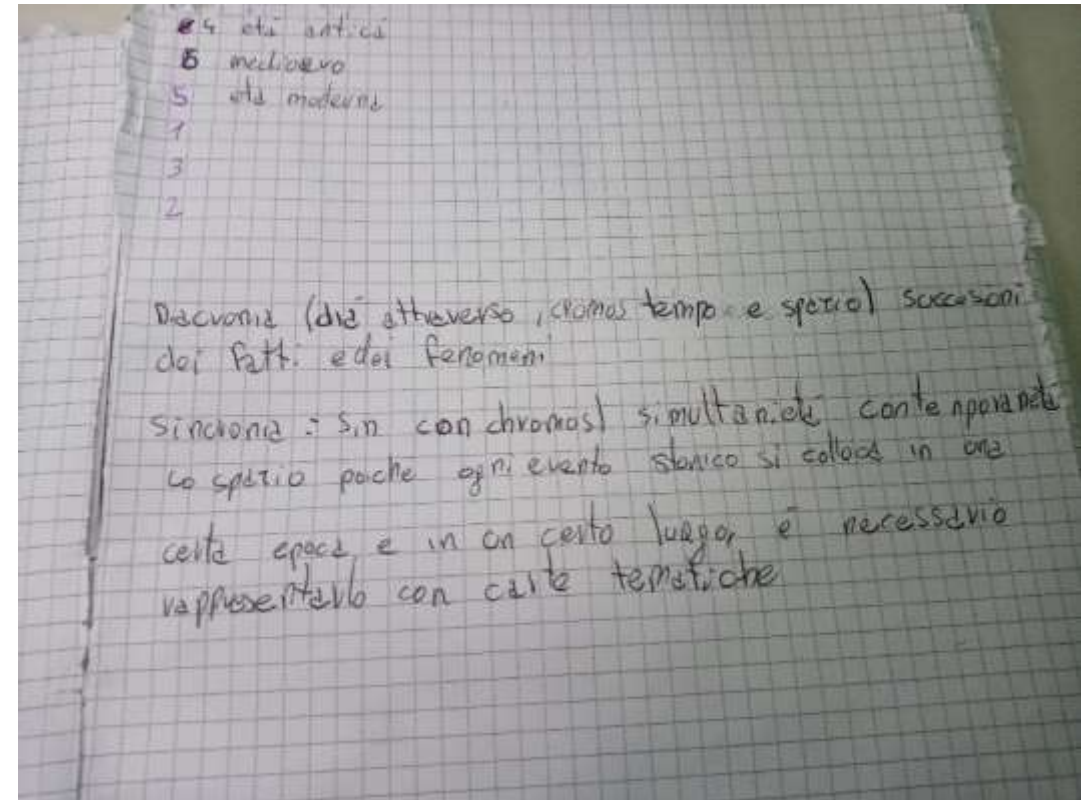 4 età antica
6 medioevo
5 età moderna
1
3
2
Diacronia (dià attraverso, cromos tempo e spazio) successoni
dei fatti e dei fenomeni
sincronia : sin con chromos) simultanietà contenporaneità
Lo spazio poiche ogni evento storico si colloca in una
certa epoca e in un certo luogo, è necessario
rappresentarlo con carte tematiche